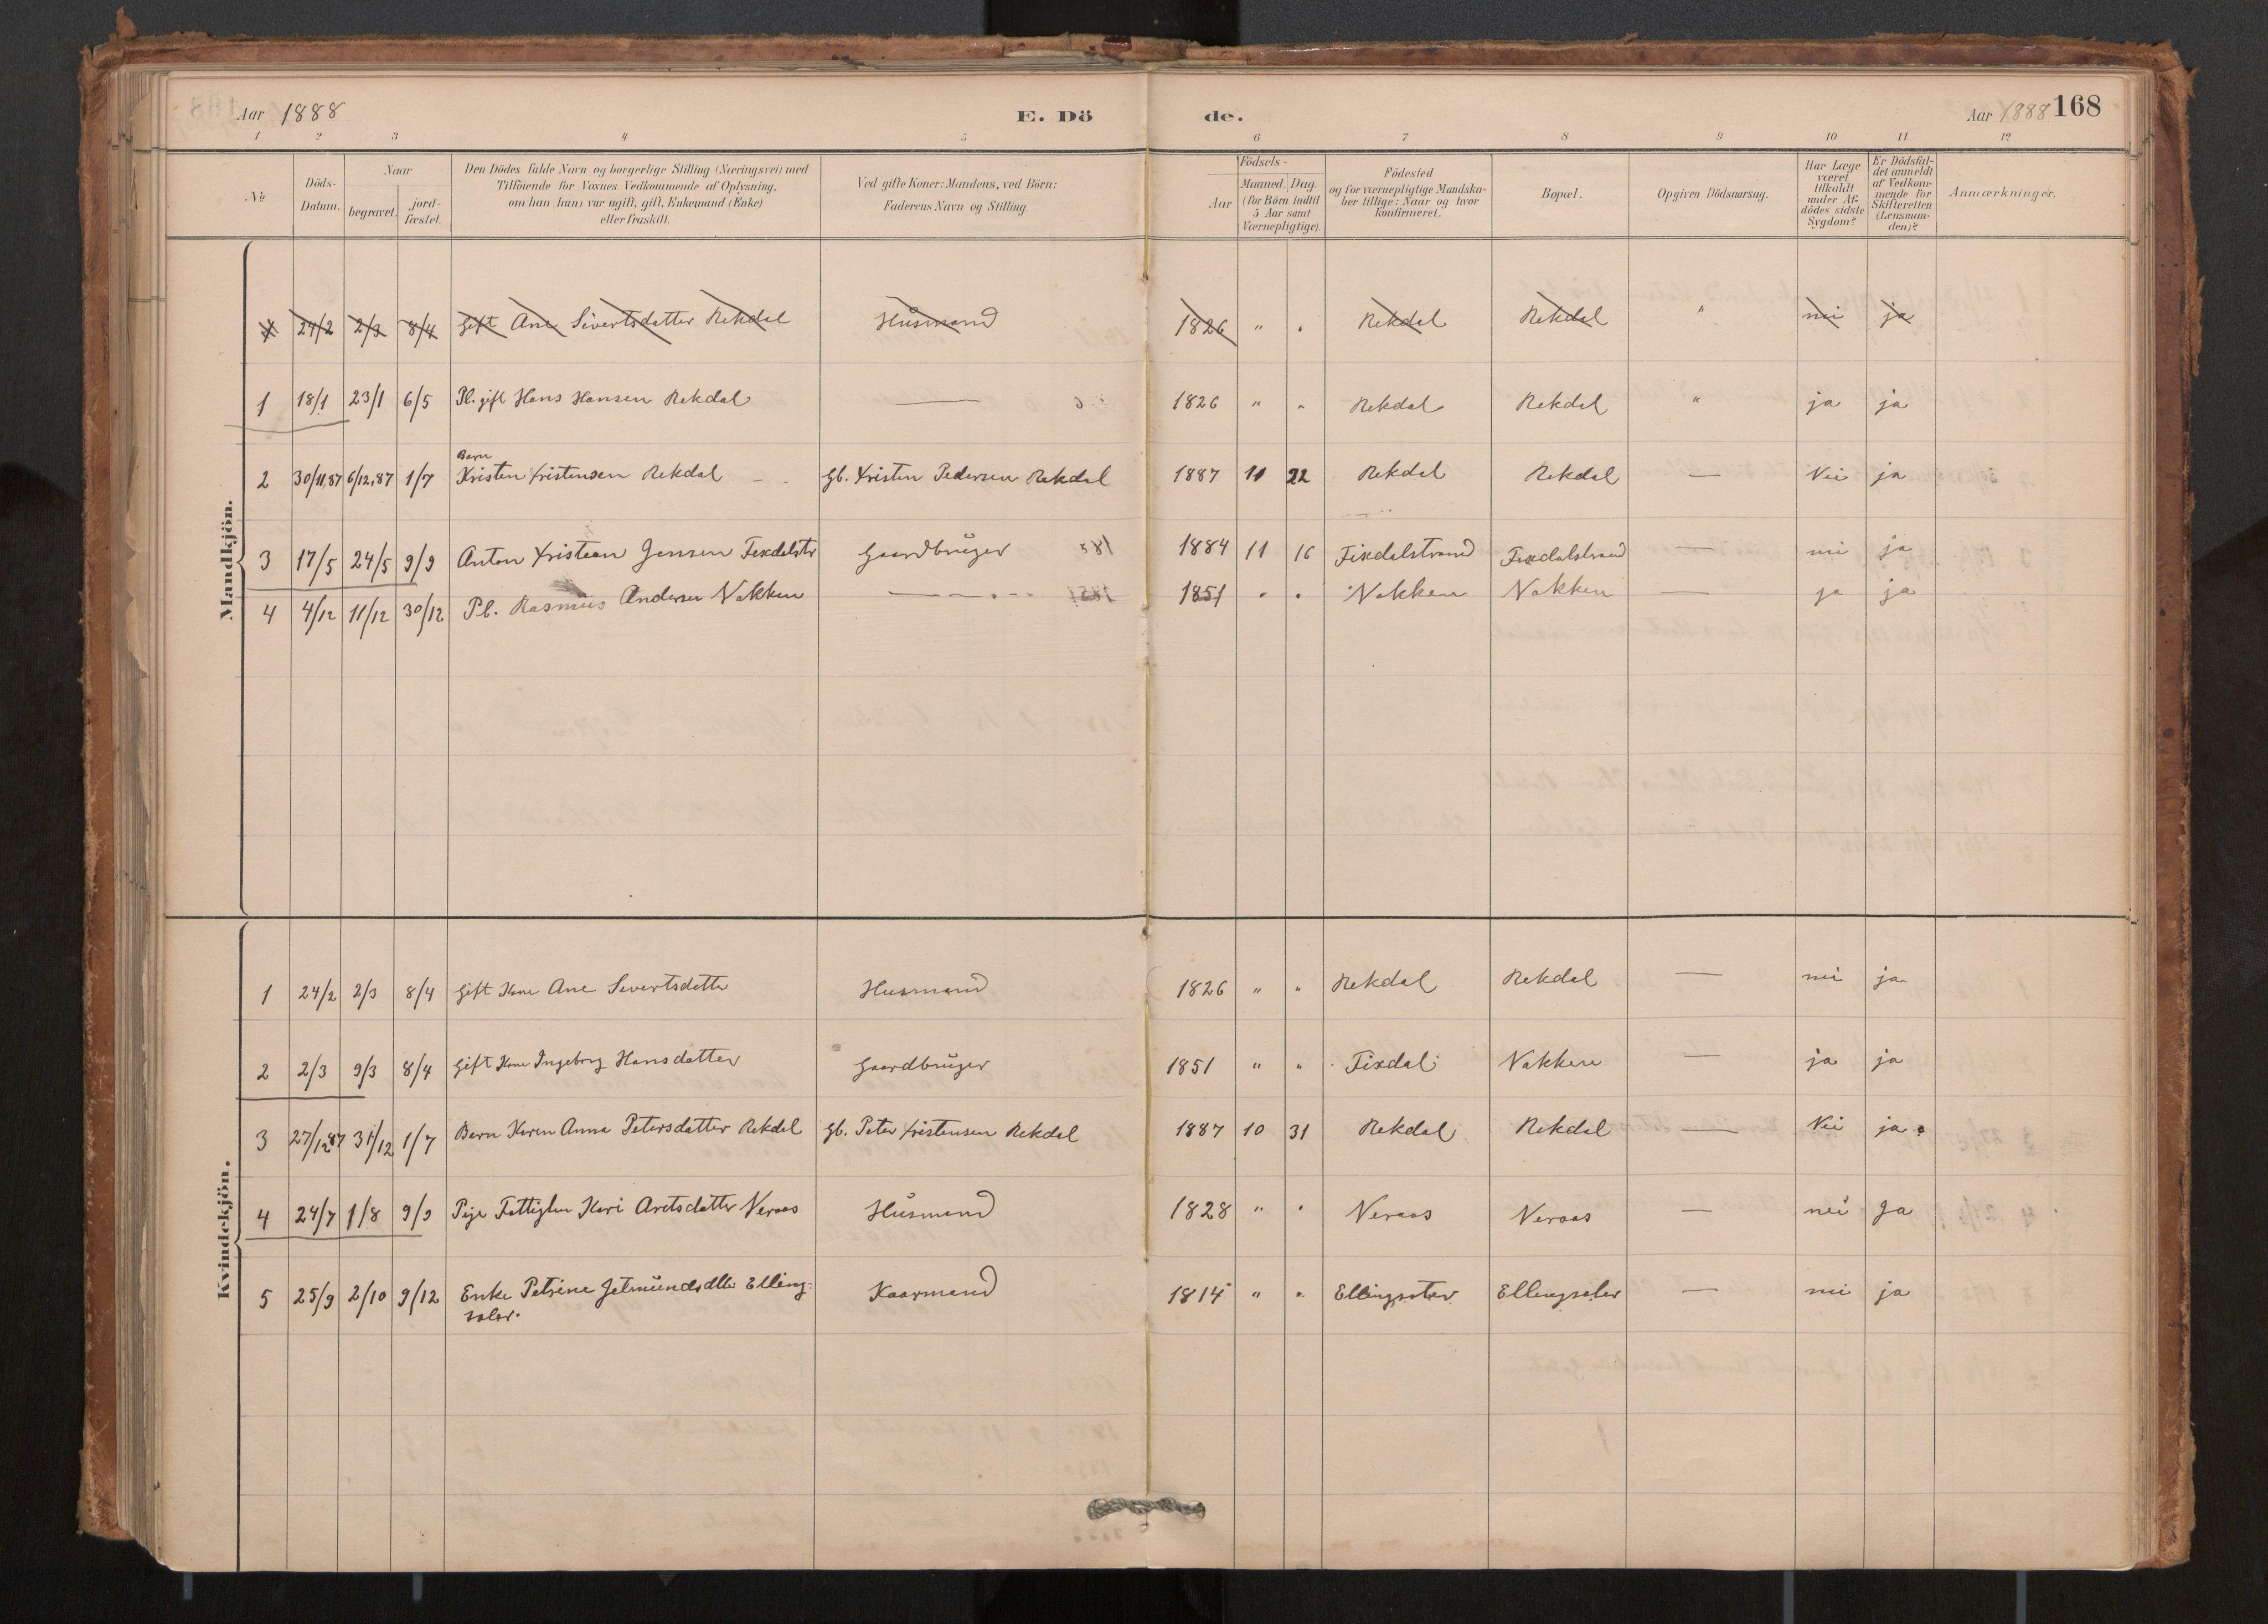 Aar 1888 E. Dö de. Aar 1888 168
1 2 3 4 5 6 7 8 9 10 11 12
No
Döds-Datum.
Naar
begravet. jord-fæstet.
Den Dödes fulde Navn og borgerlige Stilling (Næringsvei) med
Tilföiende for Voxnes Vedkommende af Oplysning,
om han (hun) var ugift, gift, Enkemand (Enke)
eller fraskilt.
Ved gifte Koner: Mandens, ved Börn:
Faderens Navn og Stilling.
Födsels-
Aar Maaned. Dag.
(for Börn indtil
5 Aar samt
Værnepligtige).
Födested
og for værnepligtige Mandska-
ber tillige: Naar og hvor
konfirmeret.
Bopæl.
Opgiven Dödsaarsag.
Har Læge
været
tilkaldt
under Af-
dödes sidste
Sygdom?
Er Dödsfal-
det anmeldt
af Vedkom-
mende for
Skifteretten
(Lensman-
den)?
Anmærkninger.
Mandkjön.
24/2 2/3 8/4 Gift Ane Sivertsdatter Rekdal Husmand 1826 " " Rekdal Rekdal " nei ja
1 18/1 23/1 6/5 Pl. gift Hans Hansen Rekdal — 1826 " " Rekdal Rekdal " ja ja
Barn
2 30/11,87 6/12,87 1/7 Kristen Kristensen Rekdal Gb. Kristen Pedersen Rekdal 1887 11 22 Rekdal Rekdal — Nei ja
3 17/5 24/5 9/9 Anton Kristian Jensen Fixdalstr Gaardbruger 1884 11 16 Fixdalstrand Fixdalstrand — nei ja
4 4/12 11/12 30/12 Pl. Rasmus Andersen Nakken — 1851 " " Nakken Nakken — ja ja
Kvindekjön.
1 24/2 2/3 8/4 Gift Kone Ane Sivertsdatter Husmand 1826 " " Rekdal Rekdal — nei ja
2 2/3 9/3 8/4 Gift Kone Ingeborg Hansdatter Gaardbruger 1851 " " Fixdal Nakken — ja ja
3 27/12 87 31/12 1/7 Barn Karen Anna Petersdatter Rekdal Gb. Peter Kristensen Rekdal 1887 10 31 Rekdal Rekdal — Nei ja
4 24/7 1/8 9/9 Pige Fattiglem Kari Aretsdatter Neraas Husmand 1828 " " Neraas Neraas — nei Ja
5 25/9 2/10 9/12 Enke Petrine Jetmundsdtter Elling-
sæter. Kaarmand 1814 " " Ellingsæter Ellingsæter — nei ja